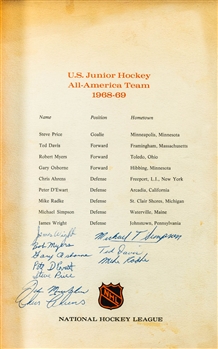 U.S. Junior Hockey
All-America Team
1968-69
Name Position Hometown
Steve Price Goalie Minneapolis, Minnesota
Ted Davis Forward Framingham, Massachusetts
Robert Myers Forward Toledo, Ohio
Gary Osborne Forward Hibbing, Minnesota
Chris Ahrens Defense Freeport, L.I., New York
Peter D'Ewart Defense Arcadia, California
Mike Radke Defense St. Clair Shores, Michigan
Michael Simpson Defense Waterville, Maine
James Wright Defense Johnstown, Pennsylvania
James Wright Michael T. Simpson
Bob Myers Ted Davis
Gary Osborne Mike Radke
Steve Price
Chris Ahrens
NHL
NATIONAL HOCKEY LEAGUE